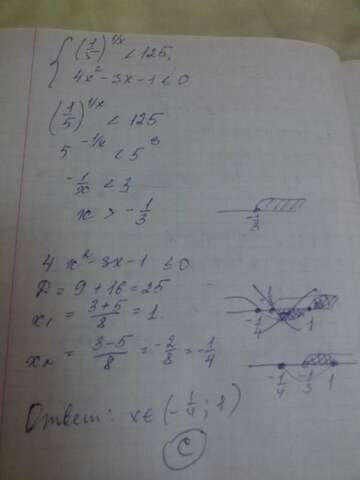 { (1/5)^{1/x} < 125,
4x² - 3x - 1 ≤ 0
(1/5)^{1/x} < 125
5^{-1/x} < 5³
-1/x < 3
x > -1/3
-1/3
4x² - 3x - 1 ≤ 0
D = 9 + 16 = 25
x₁ = (3+5)/8 = 1
-1/4 1
x₂ = (3-5)/8 = -2/8 = -1/4
-1/4 -1/3 1
Ответ: x ∈ (-1/4; 1)
C